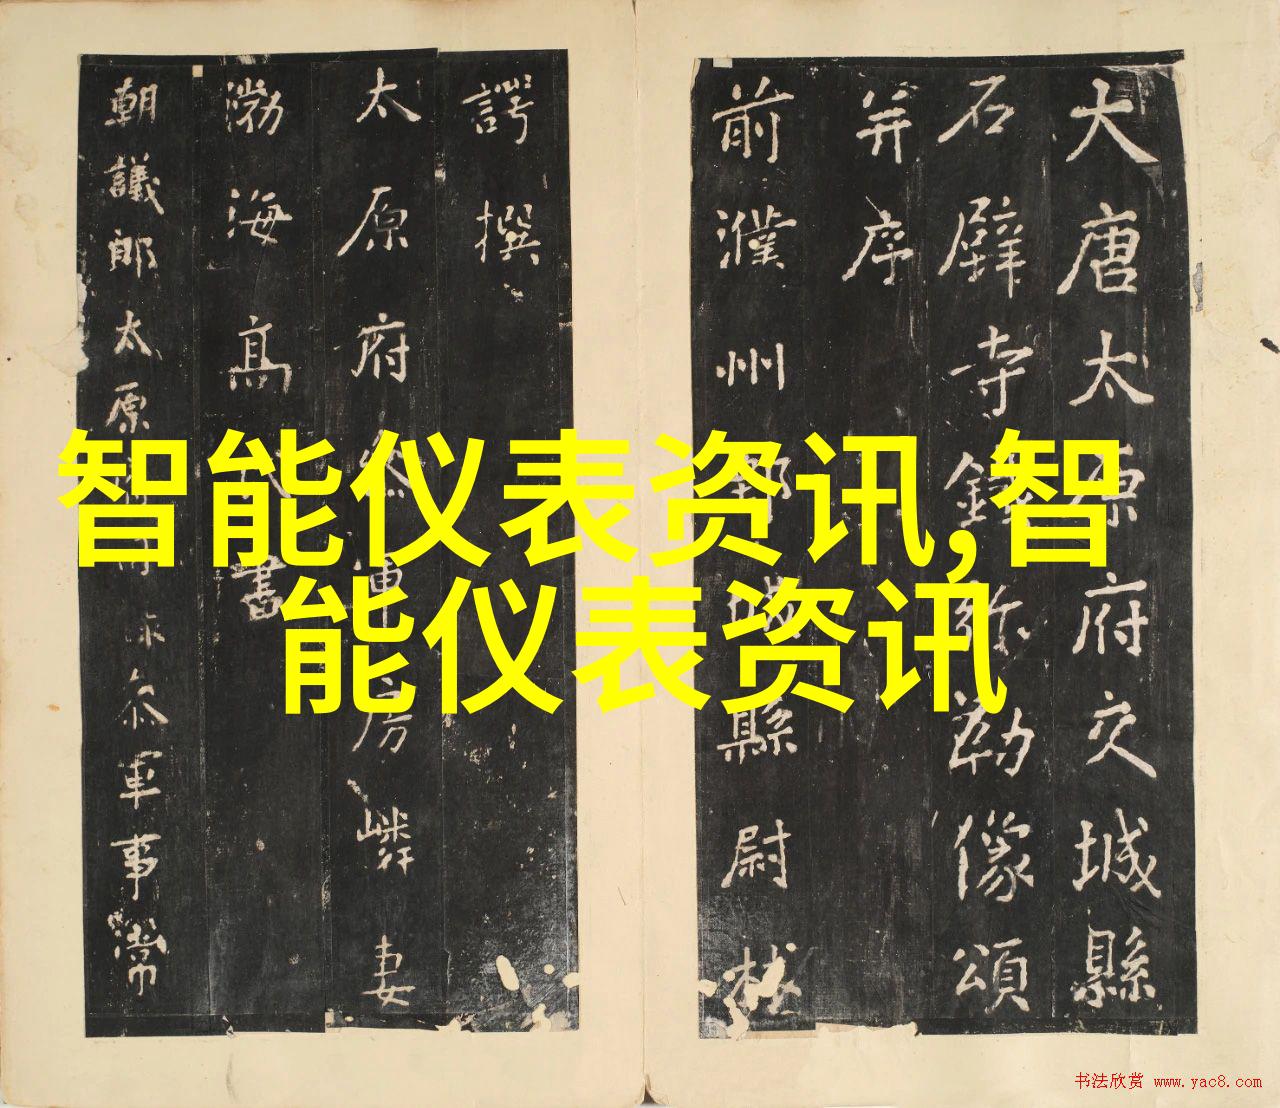 大唐太原府交城縣
石壁寺鐵弥勒像頌
并序
前濮州鄄城縣尉林
諤撰
太原府參軍房嶙妻
渤海高氏書
朝議郎太原府司錄參軍事常
智能仪表资讯,智
能仪表资讯
书法欣赏 www.yac8.com